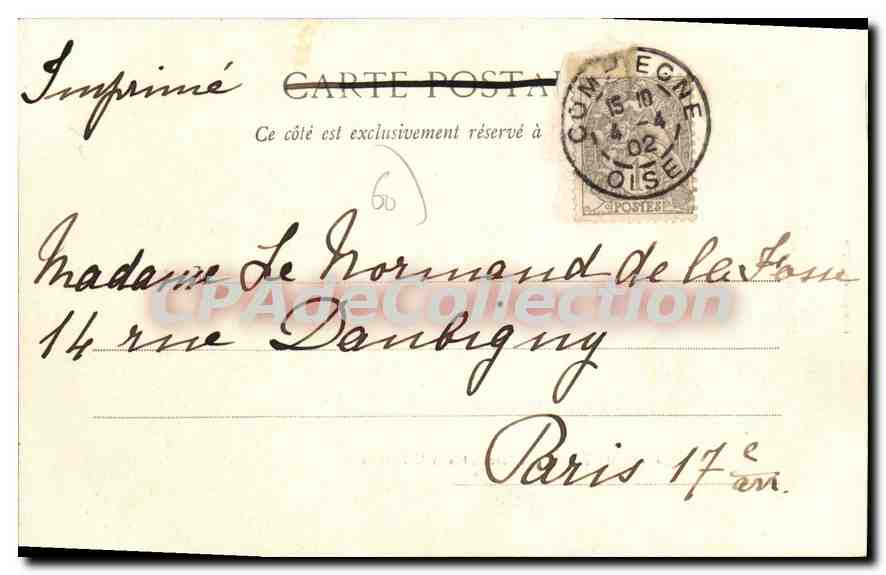 Imprimé
CARTE POSTA
Ce côté est exclusivement réservé à
COMPIEGNE
15 10
4 -4
02
OISE
POSTES
60
Madame Le Normand de la Fosse
CPAdeCollection
14 rue Daubigny
Paris 17e arr.